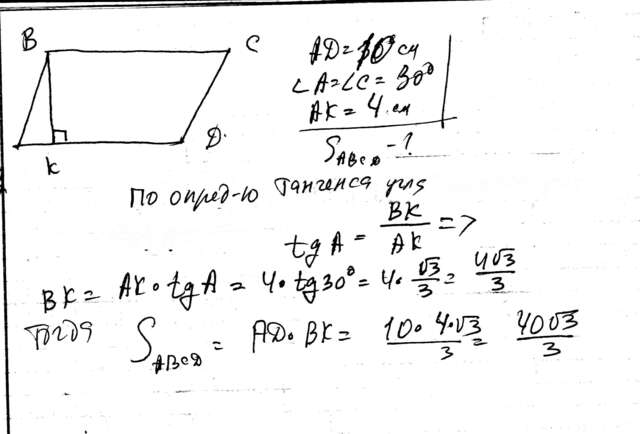 B C
K D.
AD = 10 см
∠A = ∠C = 30°
AK = 4 см
S_ABCD - ?
По опред-ю тангенса угла
tg A = BK/AK =>
BK = AK · tg A = 4 · tg 30° = 4 · √3/3 = 4√3/3
тогда S_ABCD = AD · BK = 10 · 4 · √3/3 = 40√3/3